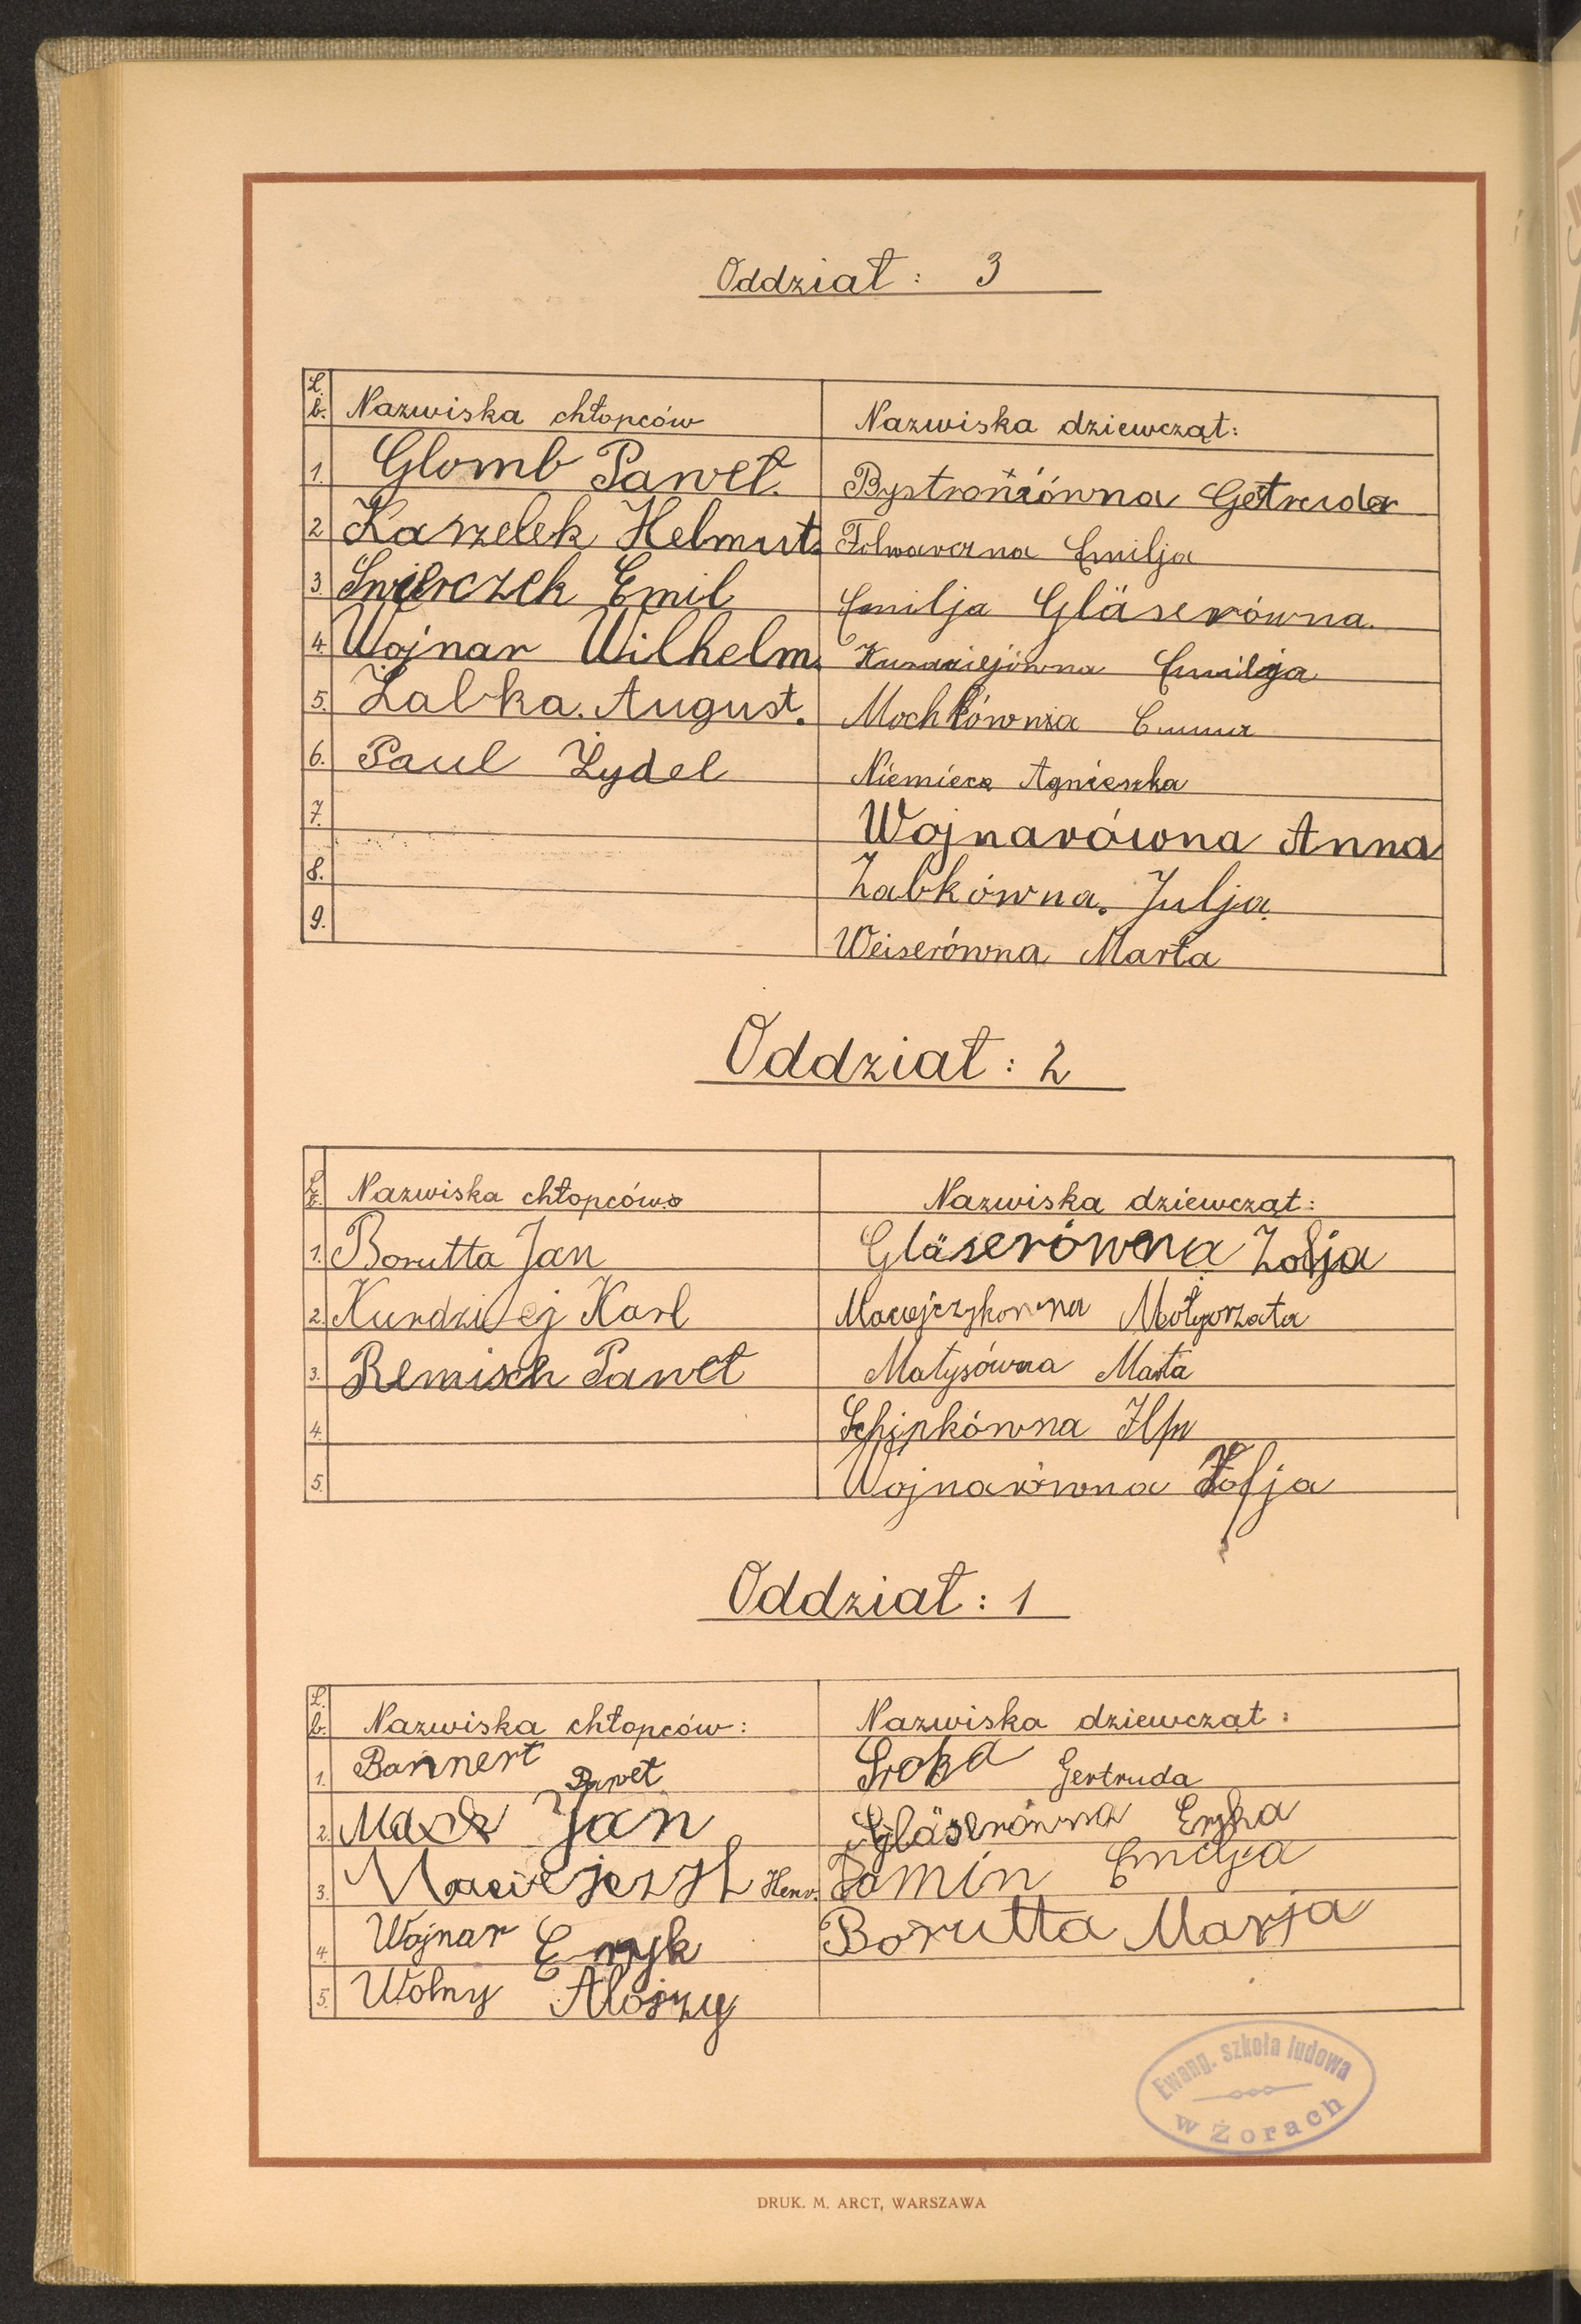 Oddział: 3
L. b. Nazwiska chłopców Nazwiska dziewcząt:
1. Glomb Paweł. Bystrońiówna Getreuder
2 Kaszelek Helmut. Folwarczna Emilja
3. Świerczek Emil Emilja Gläserówna.
4. Wojnar Wilhelm. Kurdziejówna Emilija
5. Żabka. August. Mochkówna Emma
6. Paul Żydel Niemiec Agnieszka
7. Wojnarówna Anna
8. Żabkówna. Julja
9. Weiserówna Marta
Oddział: 2
L. b. Nazwiska chłopców Nazwiska dziewcząt:
1. Borutta Jan Gläserówna Zofja
2. Kurdziej Karl Maciejczykówna Małgorzata
3. Remisch Paweł Matysówna Marta
4. Schipkówna
5. Wojnarówna Zofja
Oddział: 1
L. b. Nazwiska chłopców: Nazwiska dziewcząt:
1. Bannert Paweł Sroka Gertruda
2. Jan Gläserówna Eryka
3. Henr. Emilja
4. Wojnar Eryk Borutta Marja
5. Wolny Alojzy
Ewang. szkoła ludowa
w Żorach
DRUK. M. ARCT, WARSZAWA